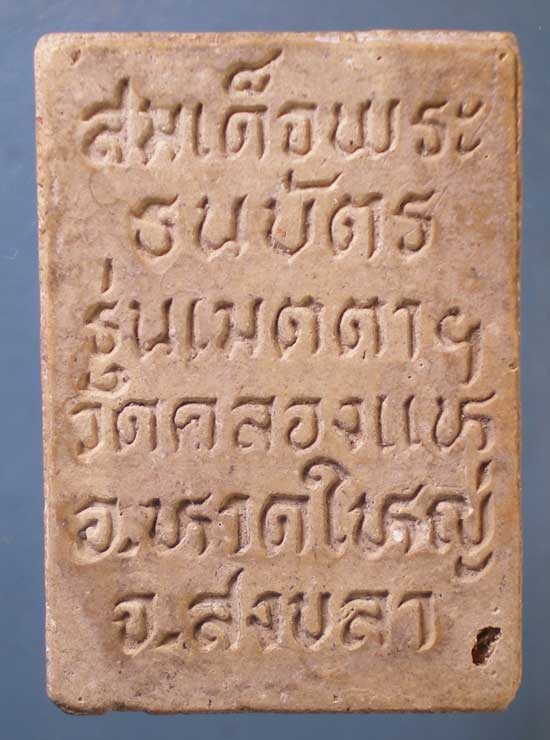 สมเด็จพระ
ธนบัตร
รุ่นเมตตาฯ
วัดคลองแห
อ.หาดใหญ่
จ.สงขลา